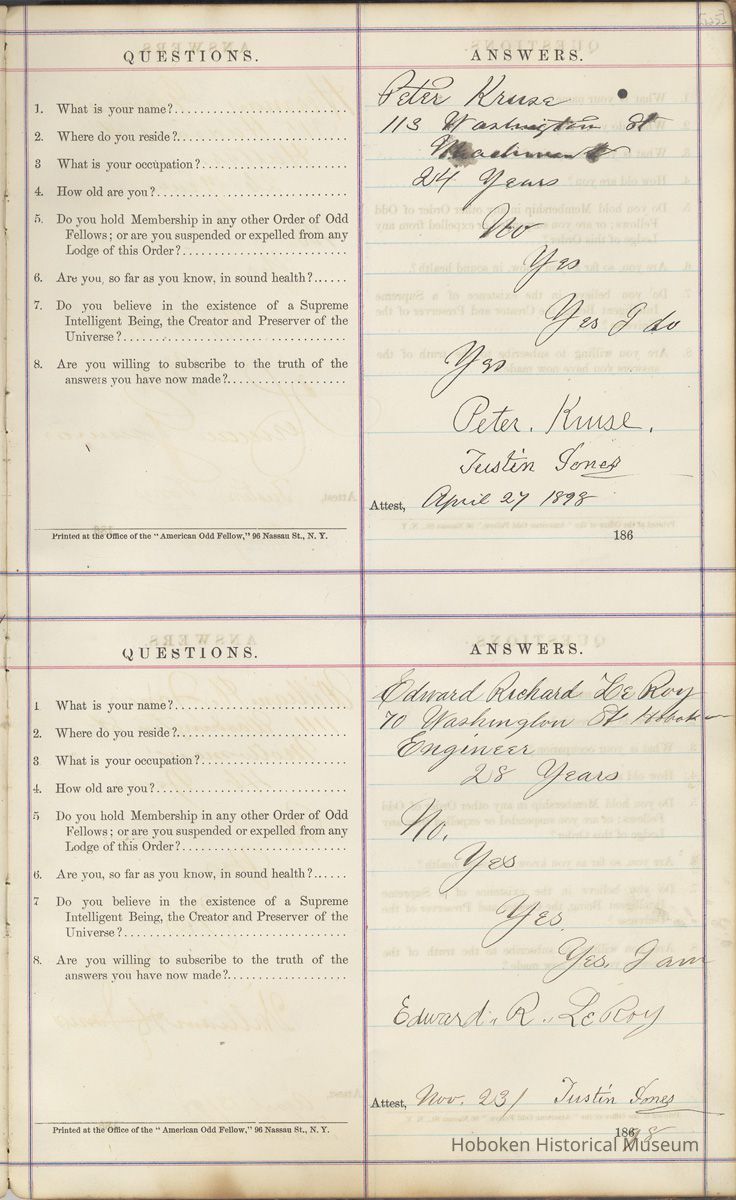 QUESTIONS.
ANSWERS.
1. What is your name?
Peter Kruse
2. Where do you reside?
113 Washington St
3 What is your occupation?
4. How old are you?
24 Years
5. Do you hold Membership in any other Order of Odd
Fellows; or are you suspended or expelled from any
Lodge of this Order?
No
6. Are you, so far as you know, in sound health?
Yes
7. Do you believe in the existence of a Supreme
Intelligent Being, the Creator and Preserver of the
Universe?
Yes I do
8. Are you willing to subscribe to the truth of the
answers you have now made?
Yes
Peter. Kruse.
Justin Jones
Attest, April 27 1898
Printed at the Office of the "American Odd Fellow," 96 Nassau St., N. Y.
186
QUESTIONS.
ANSWERS.
1 What is your name?
Edward Richard Le Roy
2. Where do you reside?
70 Washington St Hoboken
3 What is your occupation?
Engineer
4. How old are you?
28 Years
5 Do you hold Membership in any other Order of Odd
Fellows; or are you suspended or expelled from any
Lodge of this Order?
No.
6. Are you, so far as you know, in sound health?
Yes
7 Do you believe in the existence of a Supreme
Intelligent Being, the Creator and Preserver of the
Universe?
Yes
8. Are you willing to subscribe to the truth of the
answers you have now made?
Yes, I am
Edward. R. LeRoy
Attest, Nov. 23/ Justin Jones
Printed at the Office of the "American Odd Fellow," 96 Nassau St., N. Y.
Hoboken Historical Museum